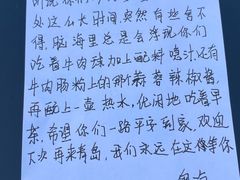 处这么长时间,突然有些舍不
得,脑海里总是会浮现你们
吃着牛肉球加上配料喝汁还有
牛肉肠粉上的那蒜蓉辣椒酱
再配上一壶热水,优闲地吃着早
茶,希望你们一路平安到家,欢迎
下次再来青岛,我们永远在这等你